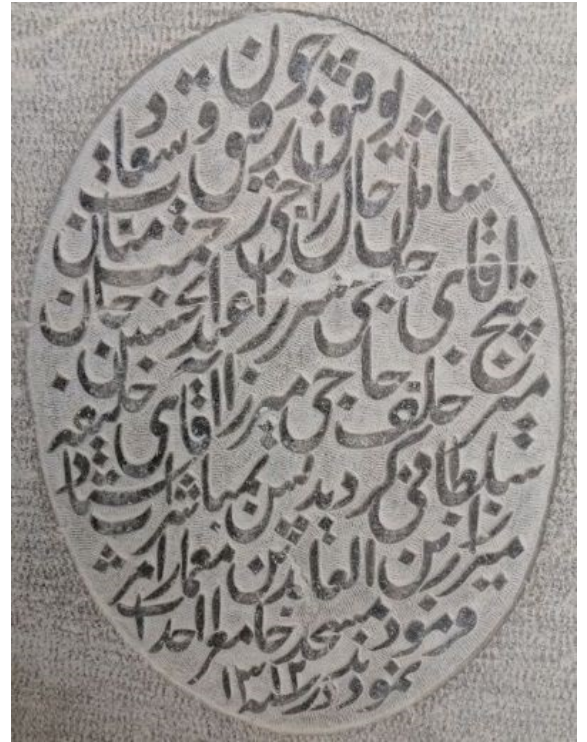 چون توفیق رفیق و سعادت
شامل حال راجی رحمت منان
آقای حاجی میرزا عبدالحسین خان
پنج میر خلف حاجی میرزا آقای خلیفه
سلطانی گردید پس بمباشرت استاد
میرزا زین العابدین معمار امر
فرمود مسجد جامع احداث
نمودند در سنه ۱۳۱۲